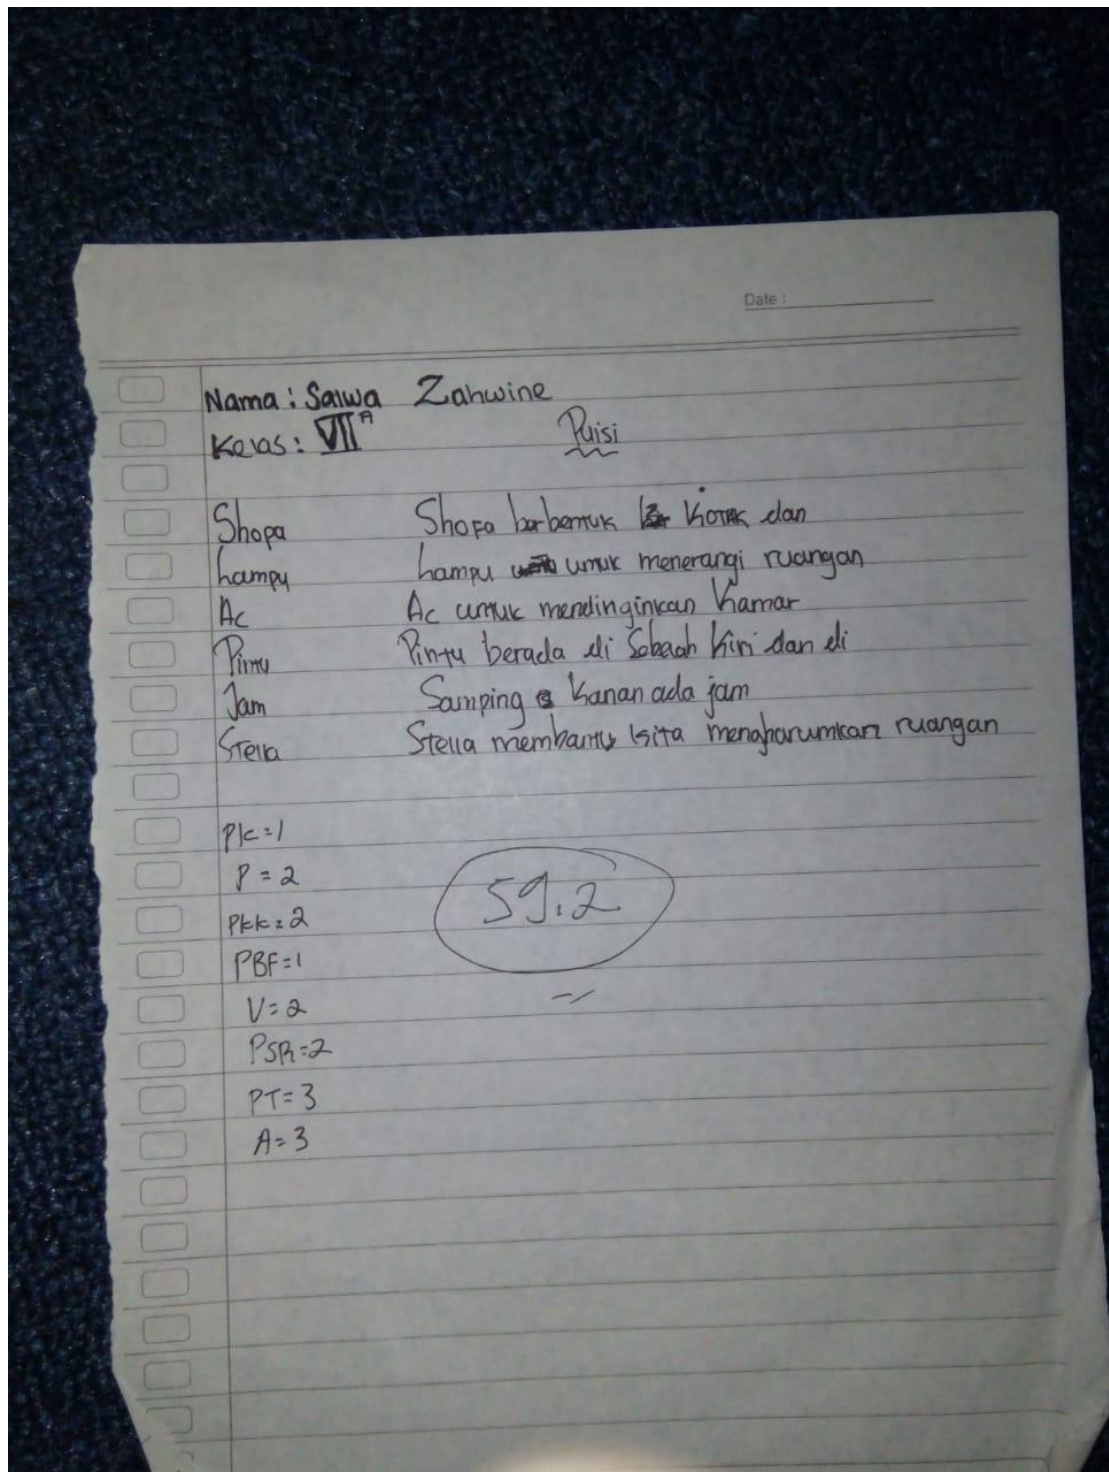 Date :
Nama : Salwa Zahwine
Kelas : VII A
Puisi
Shopa Shopa berbentuk Kotak dan
Lampu Lampu untuk menerangi ruangan
Ac Ac untuk mendinginkan Kamar
Pintu Pintu berada di Sebaah Kiri dan di
Jam Samping Kanan ada jam
Stella Stella membantu kita mengharumkan ruangan
PK=1
P = 2
PKK=2
PBF=1
V=2
PSR=2
PT=3
A=3
59.2